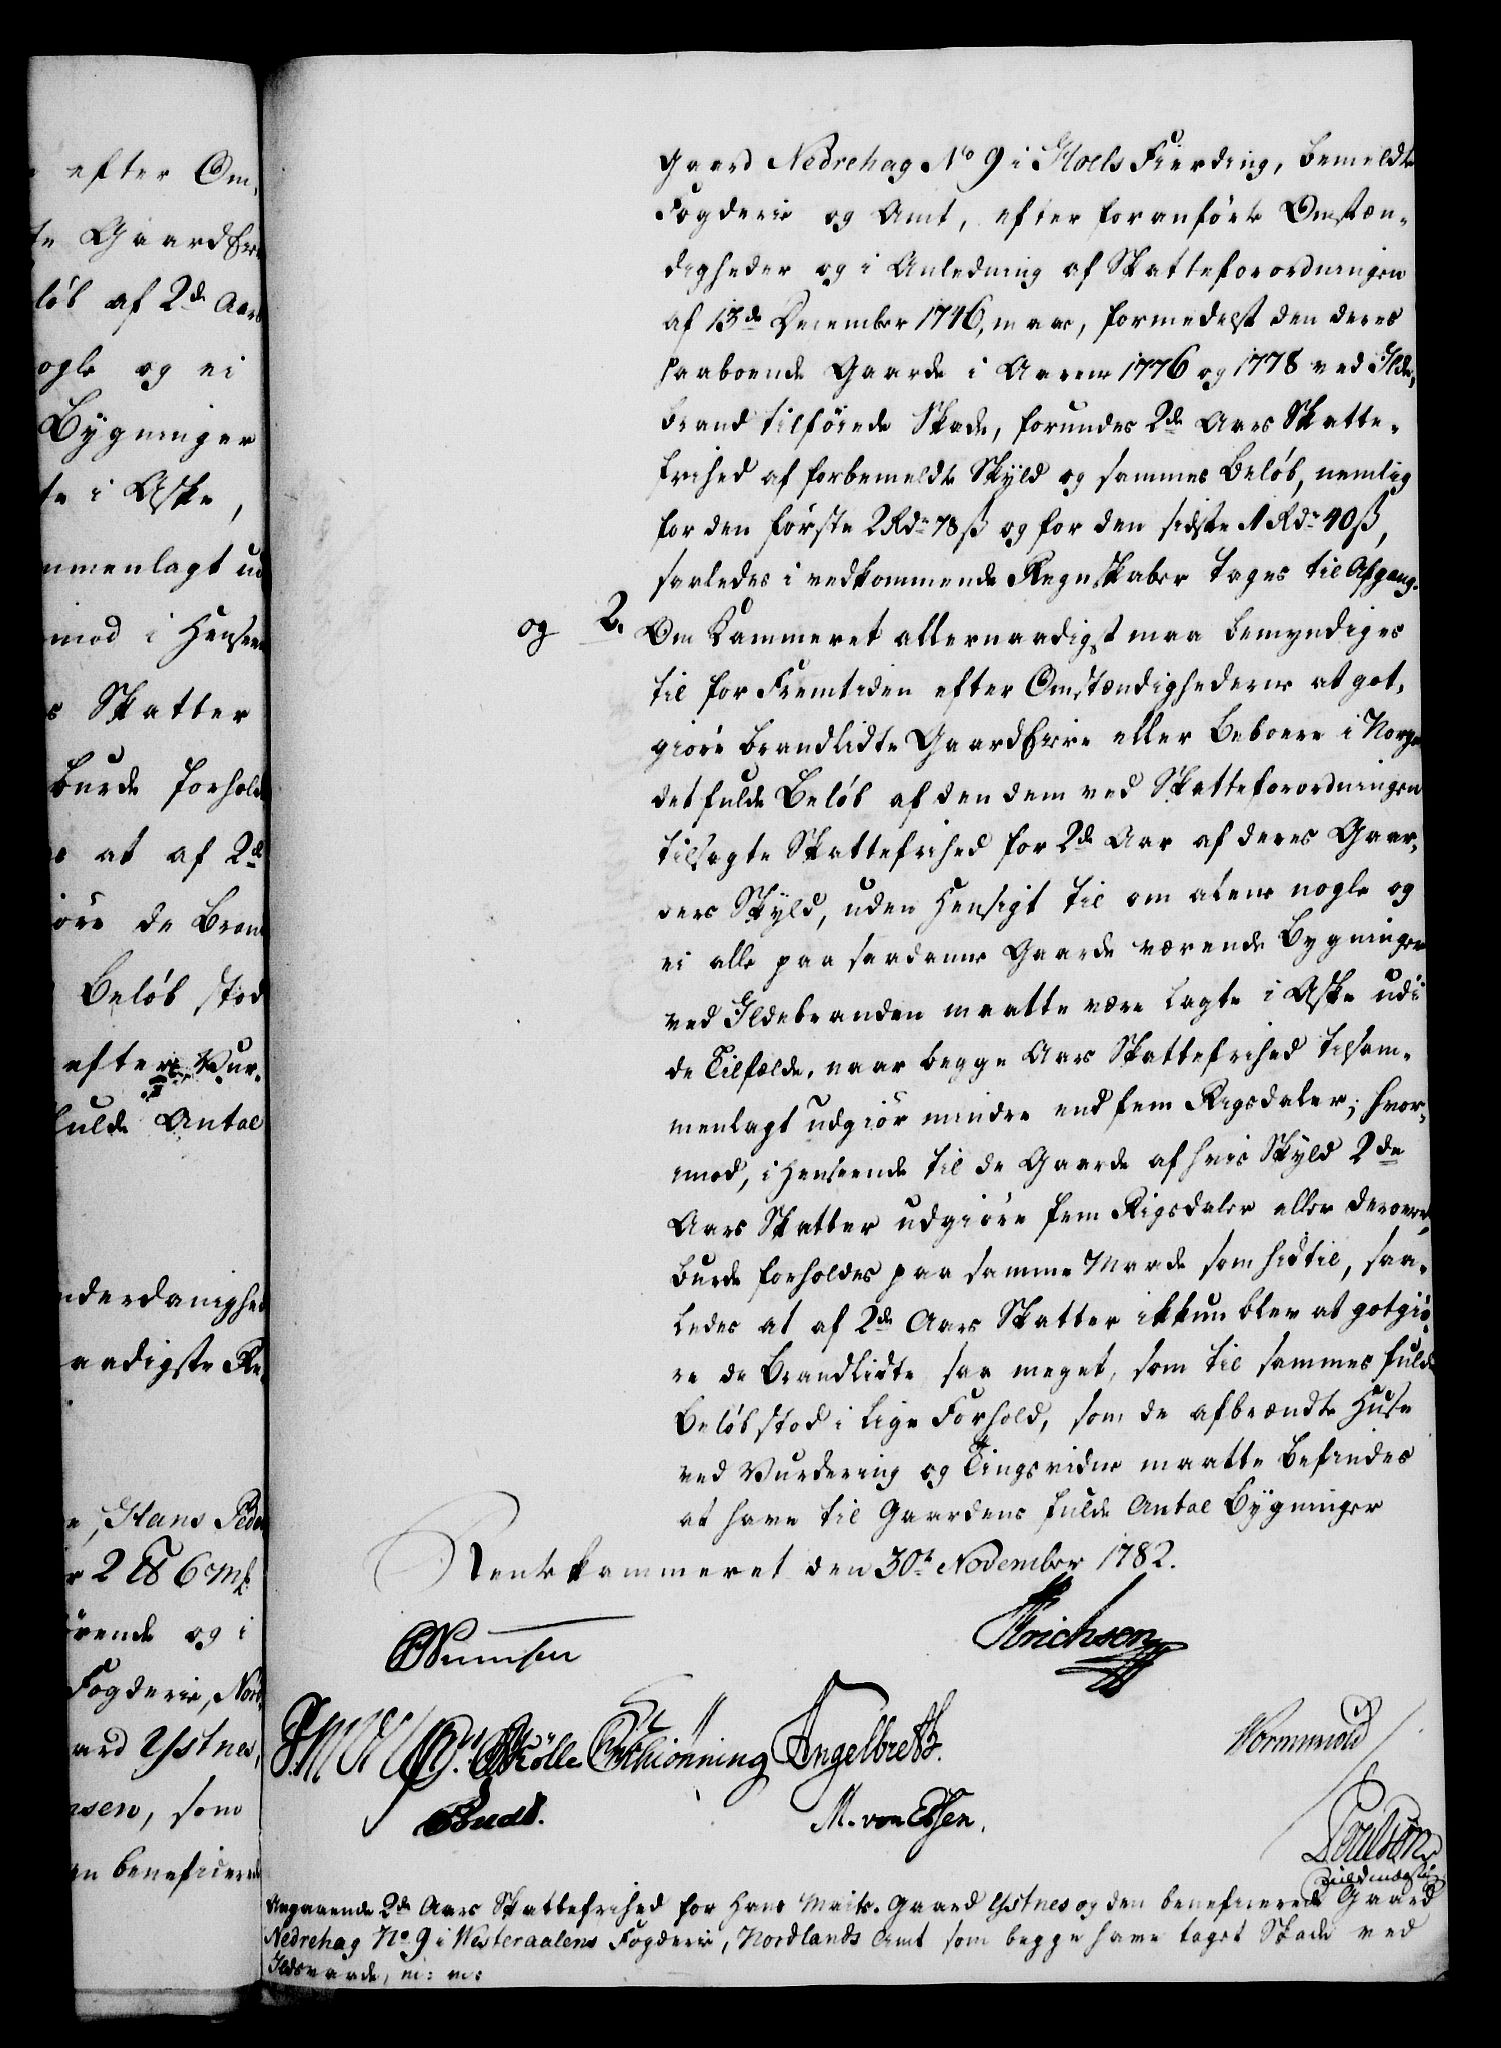 efter Om-
te Gaardbru
löb af 2de Aars
ogle og ei
Bÿgninger
te i Aske,
mmenlagt ud
mod i Hensee
s Skatter
burde forhold
at af 2de
iöre de Brand
Belöb stod
efter Vur-
fulde Antal
nderdanighed
aadigste Re
Hans Peder
r 2 ℔ 6 mk
örende og i
Fogderie, Nord
ard Ystnes,
nsen, som
en beneficerede
Gaard Nedrehag No 9 i Hoels Fierding, bemeldte
Fogderie og Amt, efter foranförte Omstæn-
digheder og i Anledning af Skatteforordningen
af 13de December 1746, maae, formedelst den deres
paaboende Gaarde i Aarene 1776 og 1778 ved Ilde-
brand tilföiede Skade, forundes 2de Aars Skatte-
frihed af forbemeldte Skÿld og sammes Belöb, nemlig
for den förste 2 Rdr 78 ß og for den sidste 1 Rdr 40 ß,
saaledes i vedkommende Regnskaber tages til Afgang.
og 2. Om Kammeret allernaadigst maa bemyndiges
til for Fremtiden efter Omstændighederne at got-
giöre brandlidte Gaardbrugere eller Beboere i Norge
det fulde Belöb af den dem ved Skatteforordningen
tilsagte Skattefrihed for 2de Aar af deres Gaar-
ders Skÿld, uden Hensigt til om alene nogle og
ei alle paa saadanne Gaarde værende Bygninger
ved Ildebranden maatte være lagte i Aske udi
de Tilfælde, naar begge Aars Skattefrihed tilsam-
menlagt udgiör mindre end fem Rigsdaler; hvor-
imod, i Henseende til de Gaarde af hvis Skÿld 2de
Aars Skatter udgiöre fem Rigsdaler eller derover,
burde forholdes paa samme Maade som hidtil, saa-
ledes at af 2de Aars Skatter ikkun blev at gotgiö-
re de Brandlidte saa meget, som til sammes fulde
Belöb stod i lige Forhold, som de afbrændte Huse
ved Vurdering og Tingsvidne maatte befindes
at have til Gaardens fulde Antal Bÿgninger
Rentekammeret den 30t November 1782.
Erichsen
Mölle Schiönning Engelbreth.
Wormwold
M. von Essen.
Poulson
Angaaende 2de Aars Skattefrihed for Hans Maits. Gaard Ystnes og den beneficerede Gaard
Nedrehag No 9 i Westeraalens Fogderie, Nordlands Amt som begge have taget Skade ved
Ildsvaade, m: m: